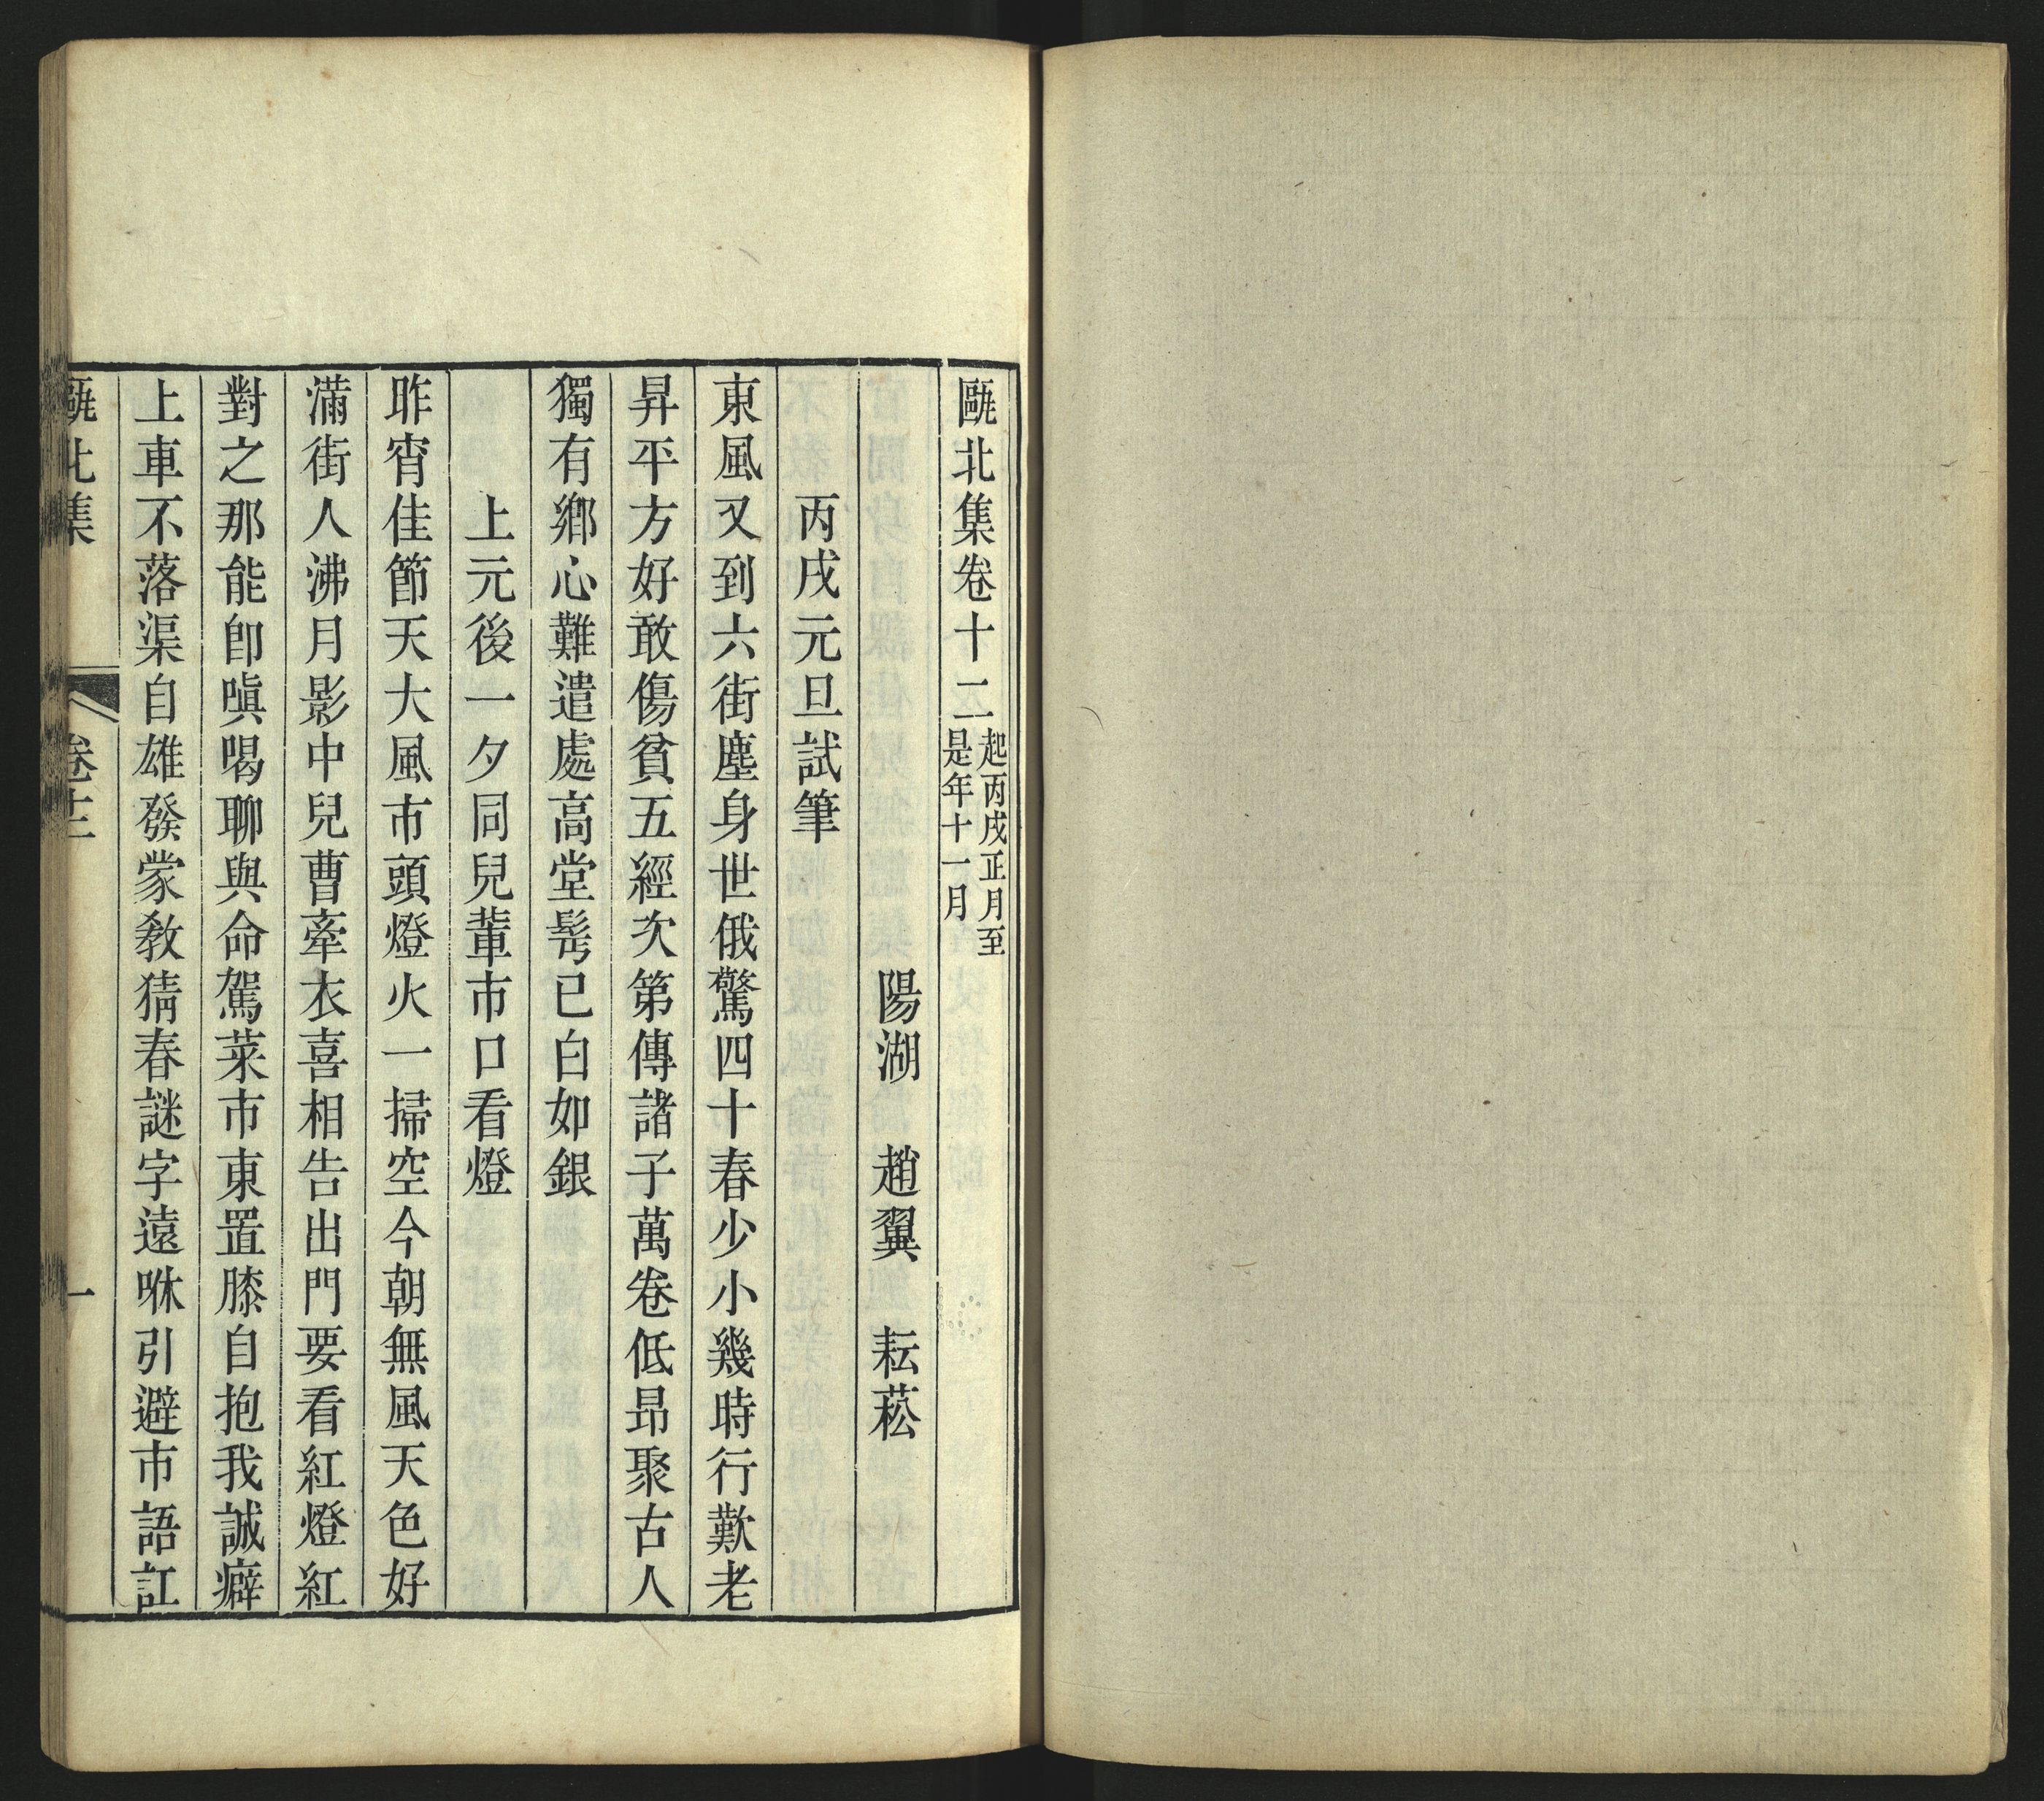 甌北集卷十二起丙戌正月至
是年十一月
陽湖 趙翼 耘菘
丙戌元旦試筆
東風又到六街塵身世俄驚四十春少小幾時行歎老
昇平方好敢傷貧五經次第傳諸子萬卷低昂聚古人
獨有鄉心難遣處高堂髩已白如銀
上元後一夕同兒輩市口看燈
昨宵佳節天大風市頭燈火一掃空今朝無風天色好
滿街人沸月影中兒曹牽衣喜相告出門要看紅燈紅
對之那能卽嗔喝聊與命駕菜市東置膝自抱我誠癖
上車不落渠自雄發蒙敎猜春謎字遠咻引避市語訌
甌北集
卷十二
一